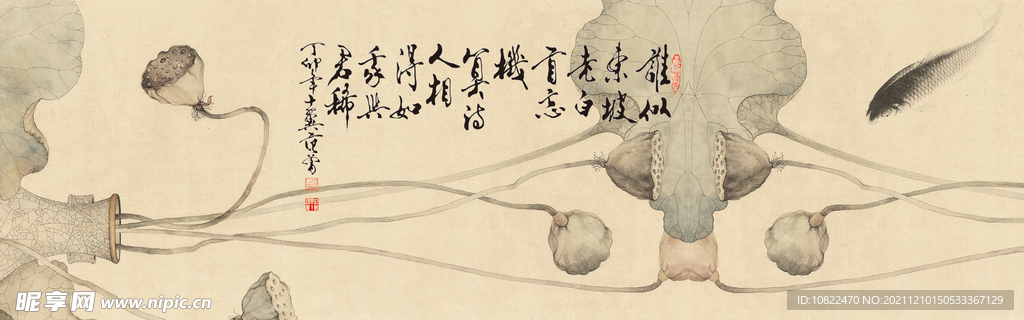 誰似
東坡
老白
首忘
機
算詩
人相
得如
我與
君稀
丁卯年十翼范曾
昵享网 www.nipic.cn
ID:10822470 NO:20211210150533367129